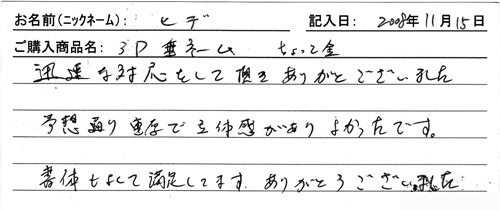 お名前(ニックネーム): ヒデ 記入日: 2008年11月15日
ご購入商品名: 3D 車ネーム ちょっと金
迅速な対応をして頂きありがとございました
予想通り重厚で立体感がありよかったです。
書体もよくて満足してます。ありがとうございました